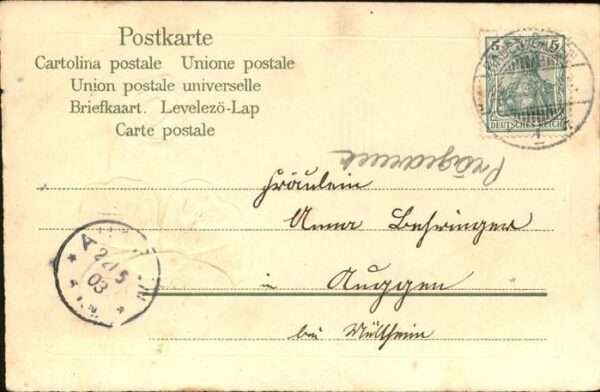 Postkarte
Cartolina postale Unione postale
Union postale universelle
Briefkaart. Levelező-Lap
Carte postale
5 5
DEUTSCHES REICH
1
Prägearmut
Fräulein
Anna Behringer
in Auggen
bei Müllheim
A
22/5
03